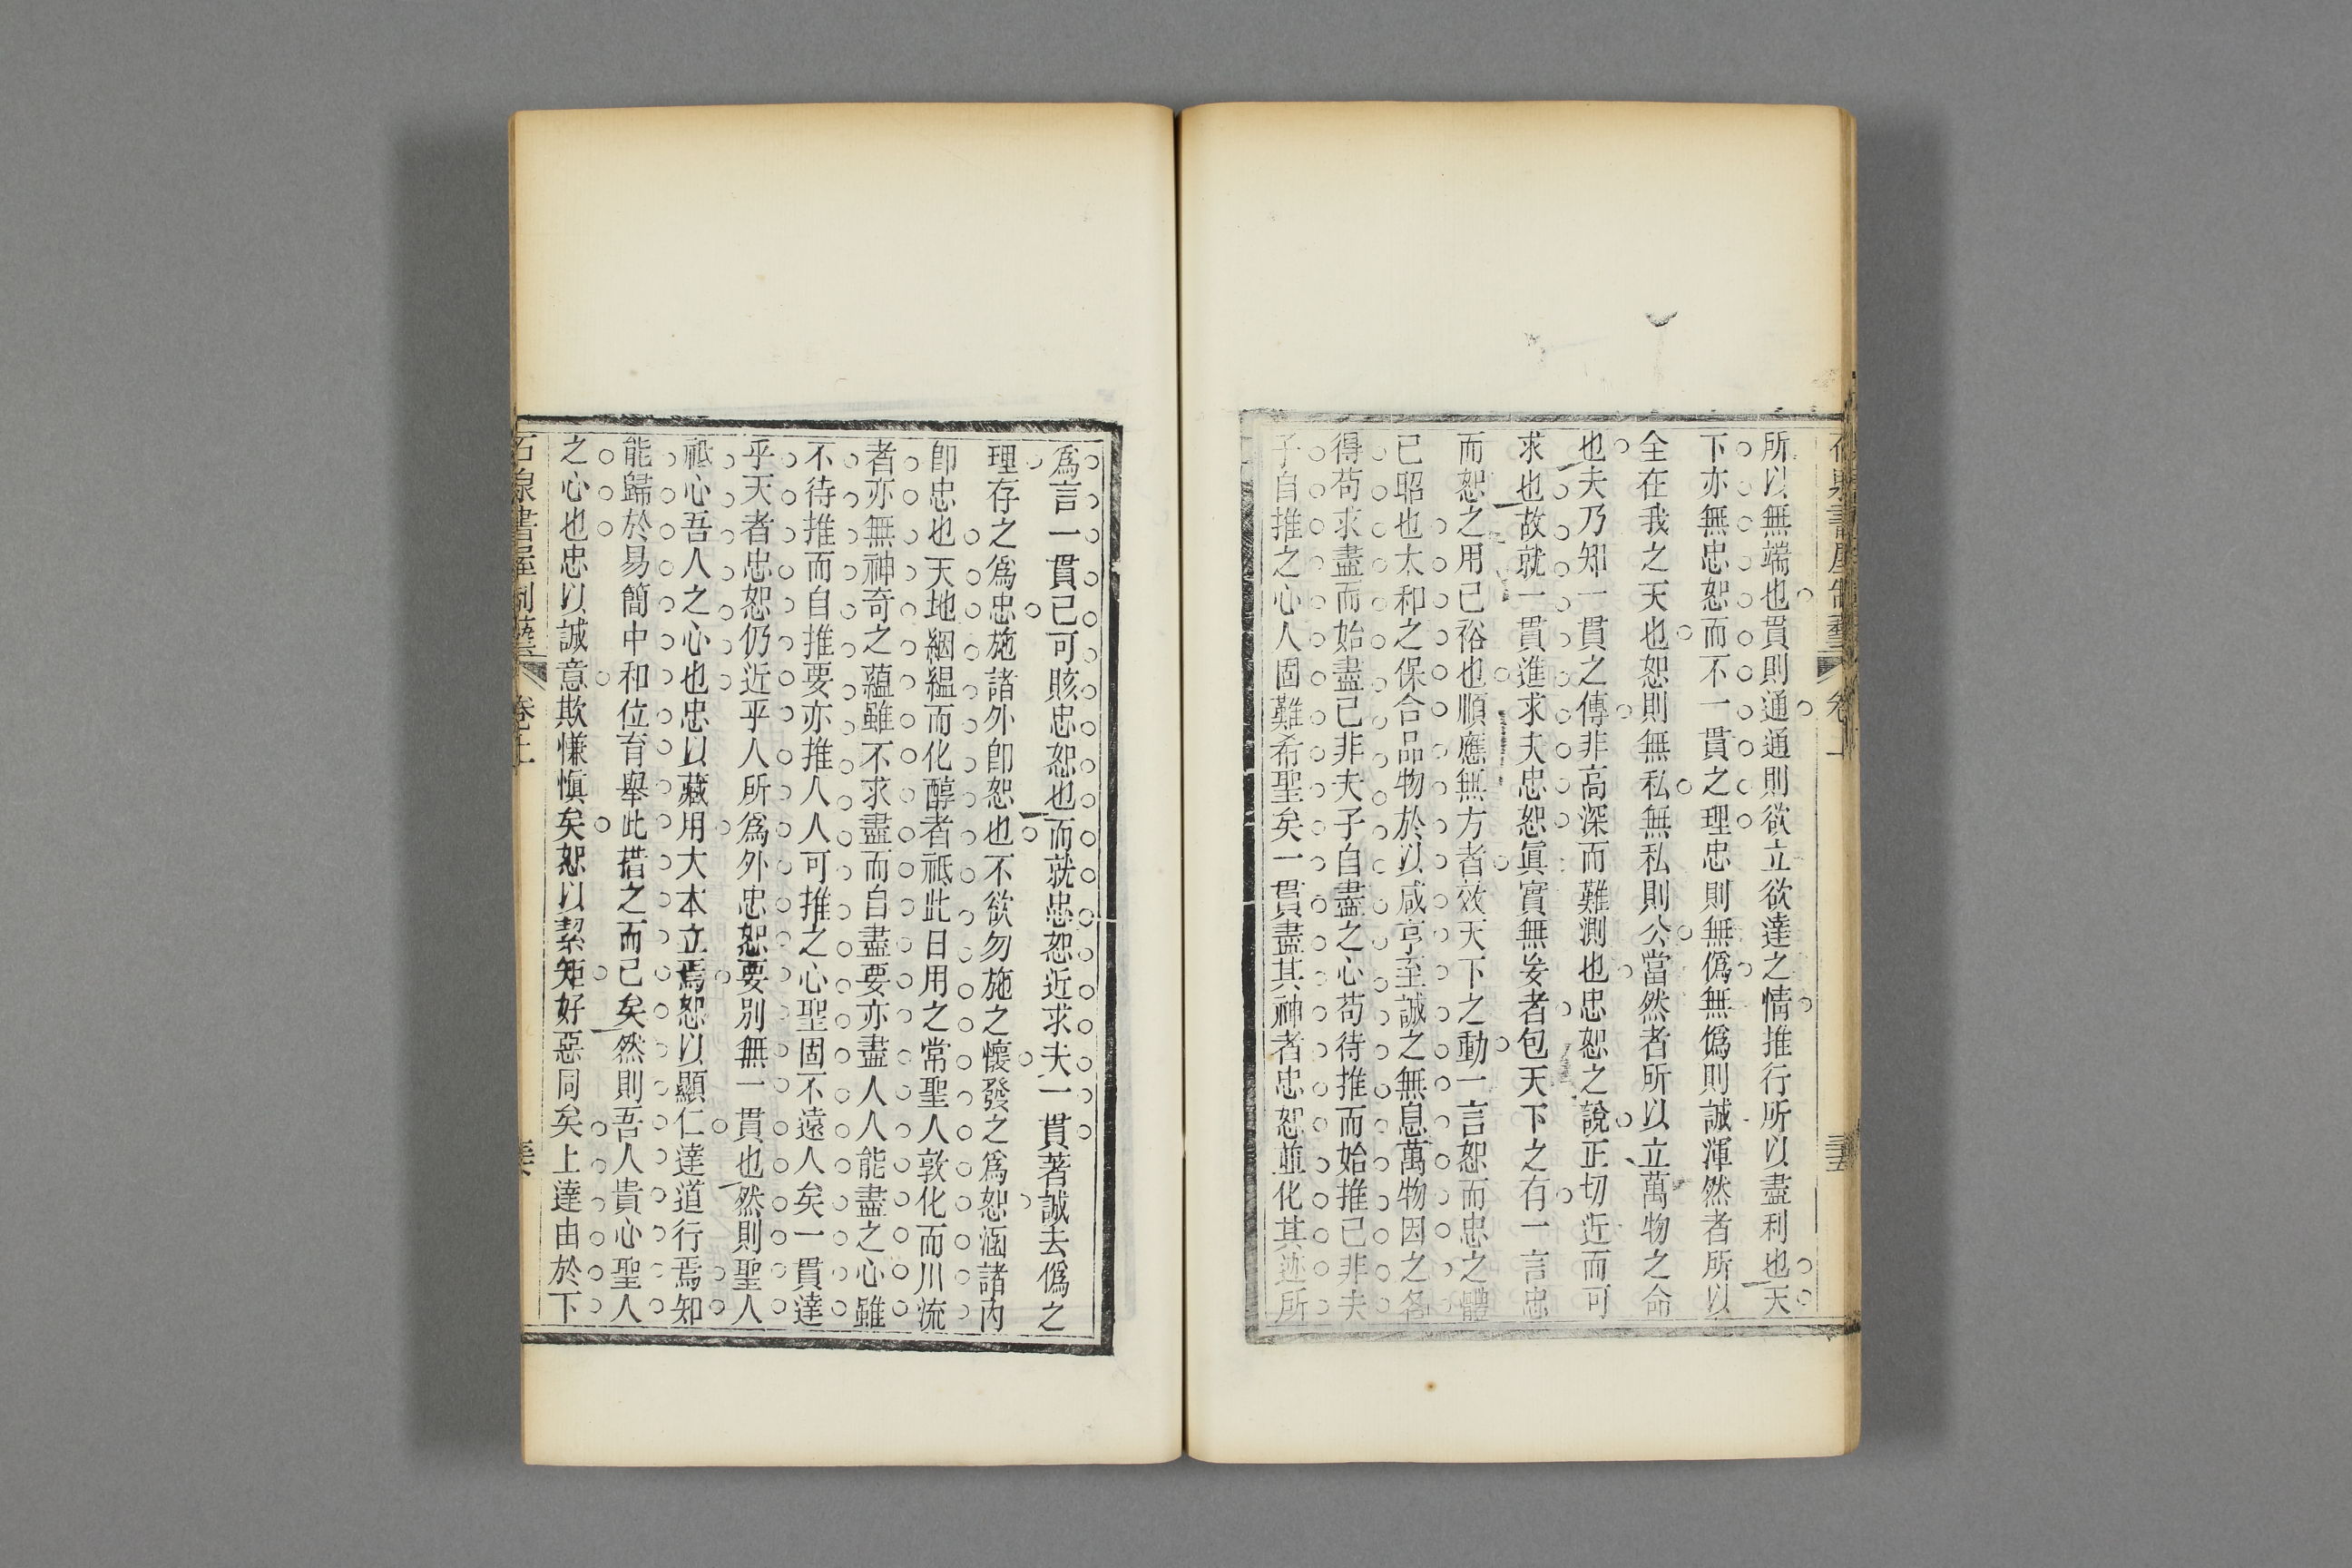 所以無端也貫則通通則欲立欲達之情推行所以盡利也天
下亦無忠恕而不一貫之理忠則無僞無僞則誠渾然者所以
全在我之天也恕則無私無私則公當然者所以立萬物之命
也夫乃知一貫之傳非高深而難測也忠恕之說正切近而可
求也故就一貫進求夫忠恕眞實無妄者包天下之有一言忠
而恕之用已裕也順應無方者效天下之動一言恕而忠之體
已昭也太和之保合品物於以咸亨至誠之無息萬物因之各
得苟求盡而始盡已非夫子自盡之心苟待推而始推已非夫
子自推之心人固難希聖矣一貫盡其神者忠恕並化其迹所
爲言一貫已可賅忠恕也而就忠恕近求夫一貫著誠去僞之
理存之爲忠施諸外卽恕也不欲勿施之懷發之爲恕涵諸内
卽忠也天地絪縕而化醇者祗此日用之常聖人敦化而川流
者亦無神奇之蘊雖不求盡而自盡要亦盡人人能盡之心雖
不待推而自推要亦推人人可推之心聖固不遠人矣一貫達
乎天者忠恕仍近乎人所爲外忠恕要別無一貫也然則聖人
祗心吾人之心也忠以藏用大本立焉恕以顯仁達道行焉知
能歸於易簡中和位育舉此措之而已矣然則吾人貴心聖人
之心也忠以誠意欺慊愼矣恕以絜矩好惡同矣上達由於下
石泉書屋制藝 卷上